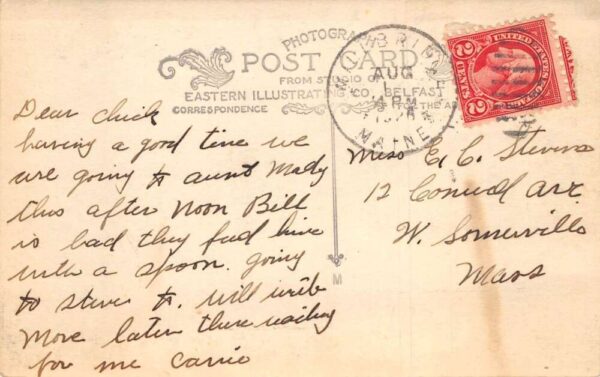 PHOTOGRAPH
POST CARD
FROM STUDIO OF
EASTERN ILLUSTRATING CO., BELFAST
CORRESPONDENCE
AUG
4 PM
MAINE
UNITED STATES
2 CENTS 2
Dear chick
having a good time we
are going to aunt Mady
this after noon Bill
is bad they feed him
with a spoon. going
to steves to. will write
more later there waiting
for me Carrie
Miss E. C. Stevens
12 Conwell Ave.
W. Somerville
Mass
M